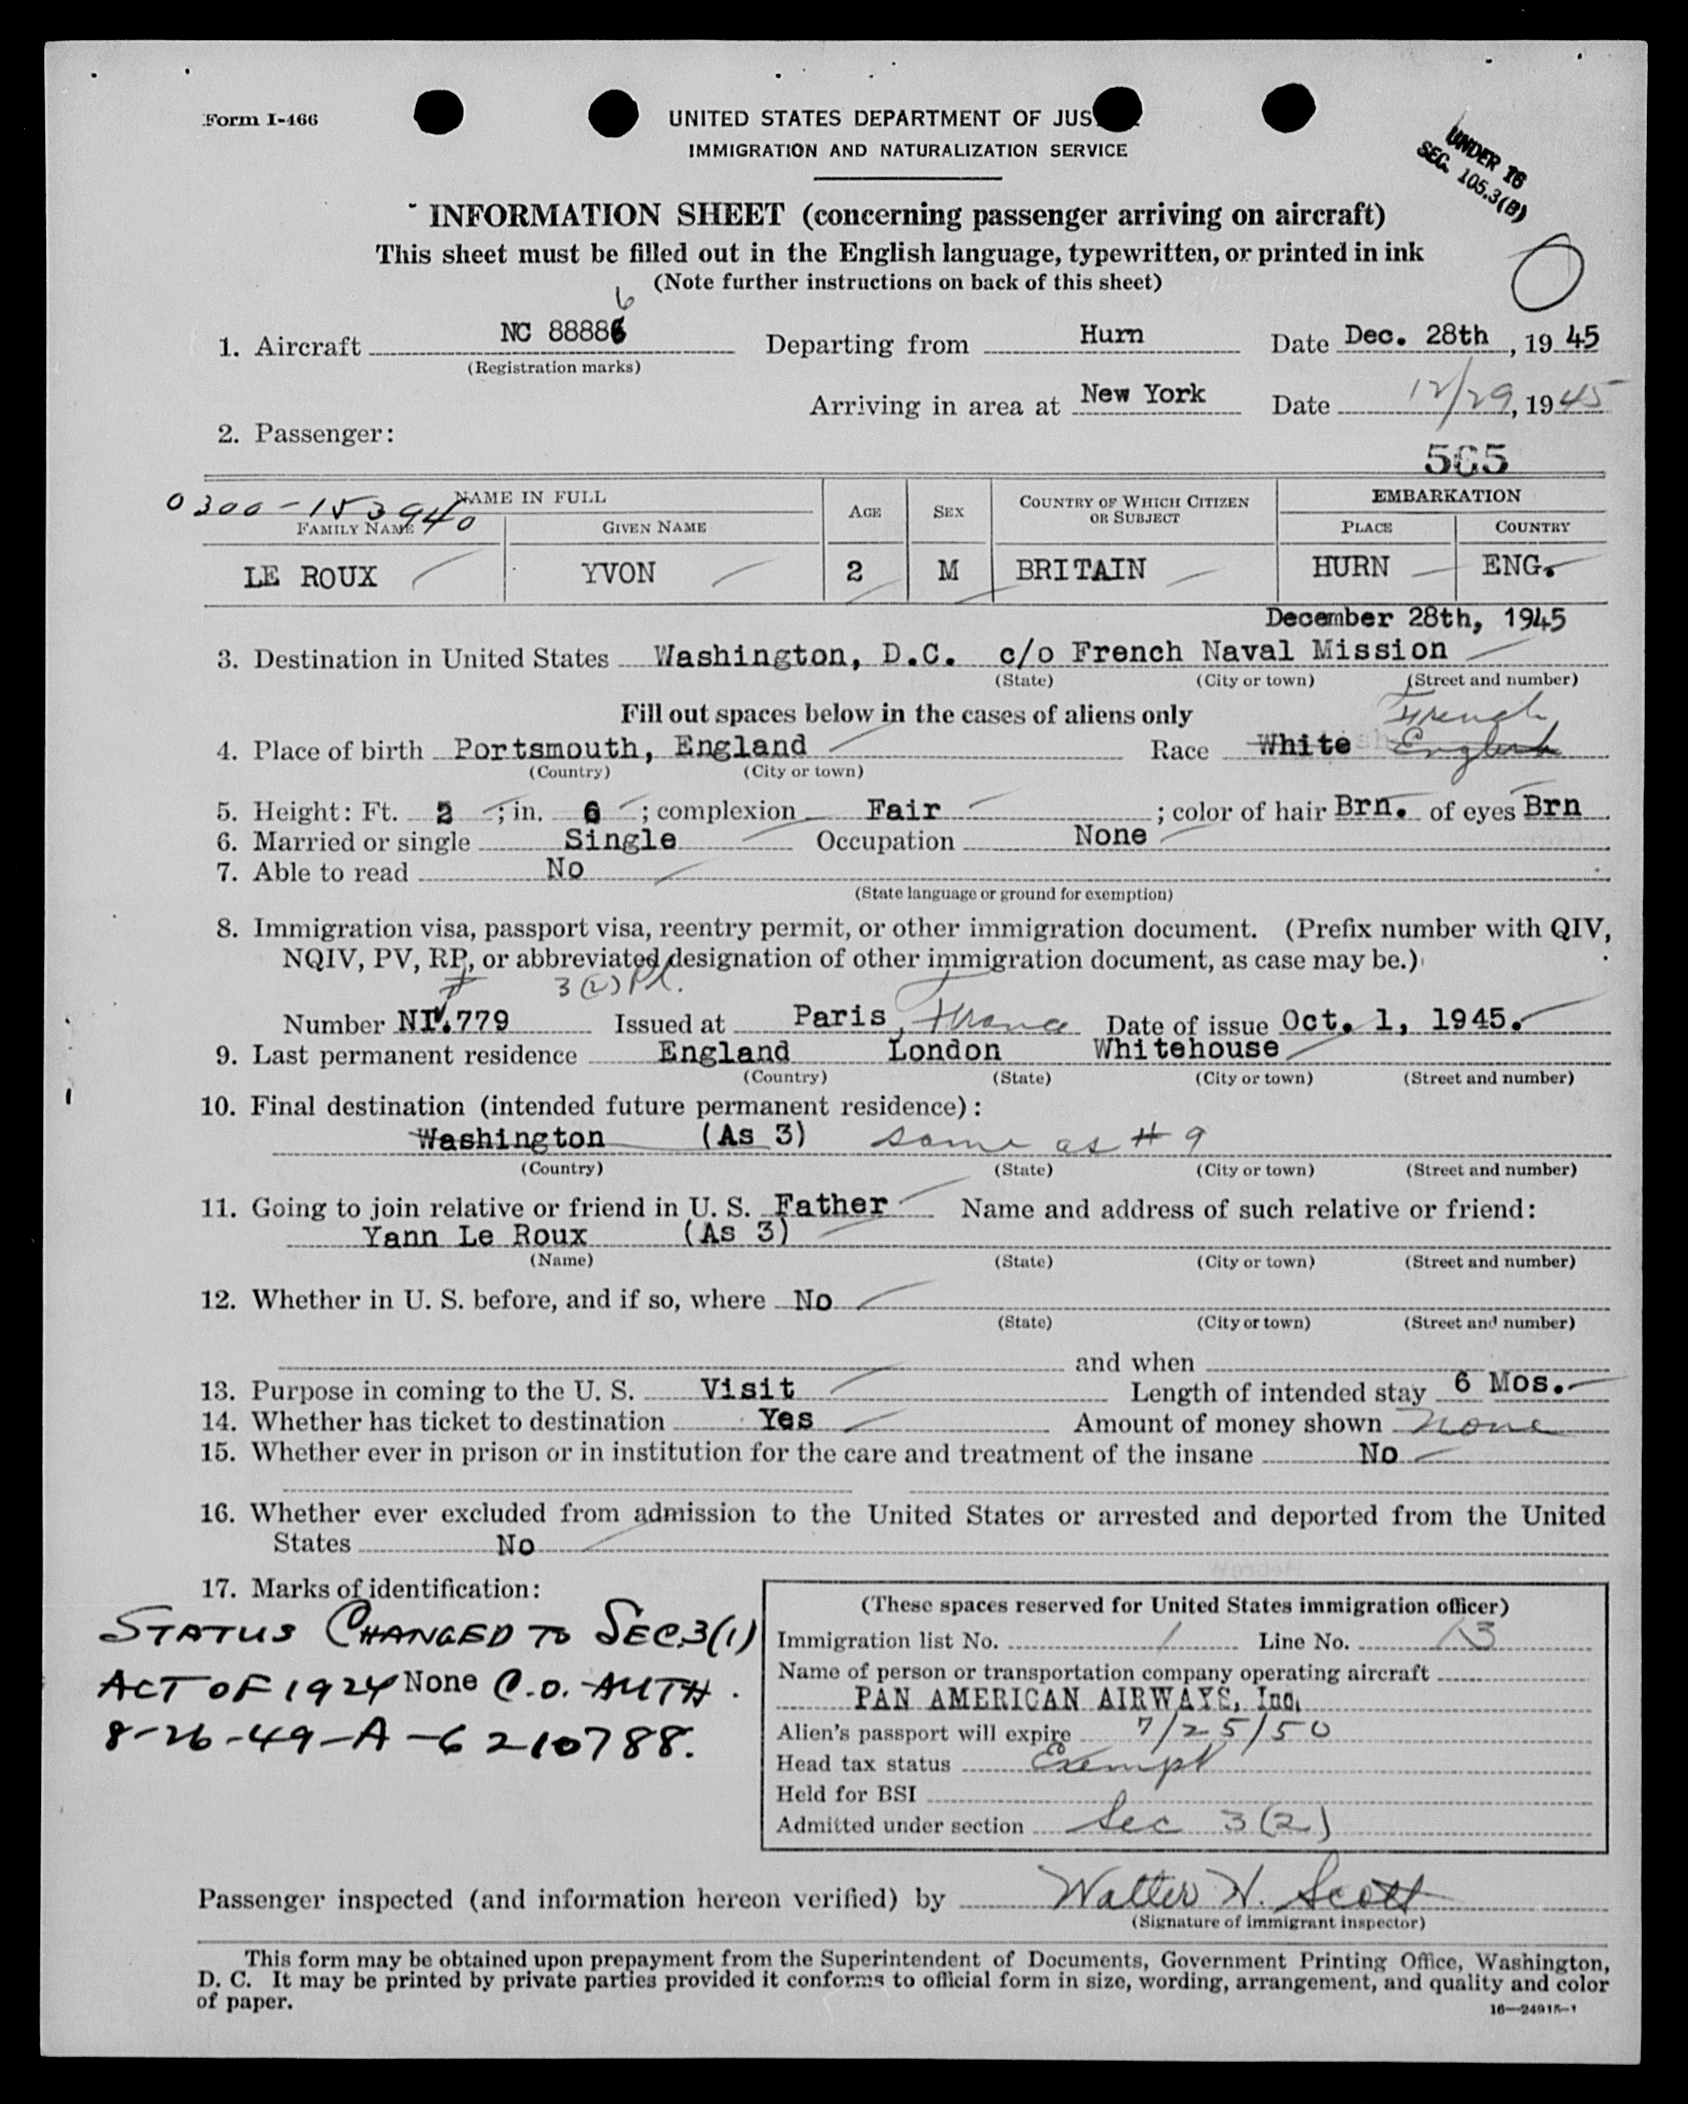 Form I-466
UNITED STATES DEPARTMENT OF JUS
IMMIGRATION AND NATURALIZATION SERVICE
UNDER 16
SEC. 105.3(B)
INFORMATION SHEET (concerning passenger arriving on aircraft)
This sheet must be filled out in the English language, typewritten, or printed in ink
(Note further instructions on back of this sheet)
6
1. Aircraft NC 88886 Departing from Hurn Date Dec. 28th, 1945
(Registration marks)
Arriving in area at New York Date 12/29, 1945
2. Passenger:
505
0300-153940
NAME IN FULL AGE SEX COUNTRY OF WHICH CITIZEN OR SUBJECT EMBARKATION
FAMILY NAME GIVEN NAME PLACE COUNTRY
LE ROUX YVON 2 M BRITAIN HURN ENG.
December 28th, 1945
3. Destination in United States Washington, D.C. c/o French Naval Mission
(State) (City or town) (Street and number)
Fill out spaces below in the cases of aliens only French
4. Place of birth Portsmouth, England Race White English
(Country) (City or town)
5. Height: Ft. 2; in. 6; complexion Fair; color of hair Brn. of eyes Brn
6. Married or single Single Occupation None
7. Able to read No
(State language or ground for exemption)
8. Immigration visa, passport visa, reentry permit, or other immigration document. (Prefix number with QIV,
NQIV, PV, RP, or abbreviated designation of other immigration document, as case may be.)
# 3(2) PV.
Number NIV.779 Issued at Paris, France Date of issue Oct. 1, 1945.
9. Last permanent residence England London Whitehouse
(Country) (State) (City or town) (Street and number)
10. Final destination (intended future permanent residence):
Washington (As 3) same as # 9
(Country) (State) (City or town) (Street and number)
11. Going to join relative or friend in U. S. Father Name and address of such relative or friend:
Yann Le Roux (As 3)
(Name) (State) (City or town) (Street and number)
12. Whether in U. S. before, and if so, where No
(State) (City or town) (Street and number)
and when
13. Purpose in coming to the U. S. Visit Length of intended stay 6 Mos.
14. Whether has ticket to destination Yes Amount of money shown None
15. Whether ever in prison or in institution for the care and treatment of the insane No
16. Whether ever excluded from admission to the United States or arrested and deported from the United
States No
17. Marks of identification:
STATUS CHANGED TO SEC. 3(1)
ACT OF 1924 None C.O. AUTH.
8-26-49-A-6210788.
(These spaces reserved for United States immigration officer)
Immigration list No. 1 Line No. 13
Name of person or transportation company operating aircraft
PAN AMERICAN AIRWAYS, Inc.
Alien's passport will expire 7/25/50
Head tax status Exempt
Held for BSI
Admitted under section Sec 3(2)
Passenger inspected (and information hereon verified) by Walter W. Scott
(Signature of immigrant inspector)
This form may be obtained upon prepayment from the Superintendent of Documents, Government Printing Office, Washington,
D. C. It may be printed by private parties provided it conforms to official form in size, wording, arrangement, and quality and color
of paper.
16—24915-1